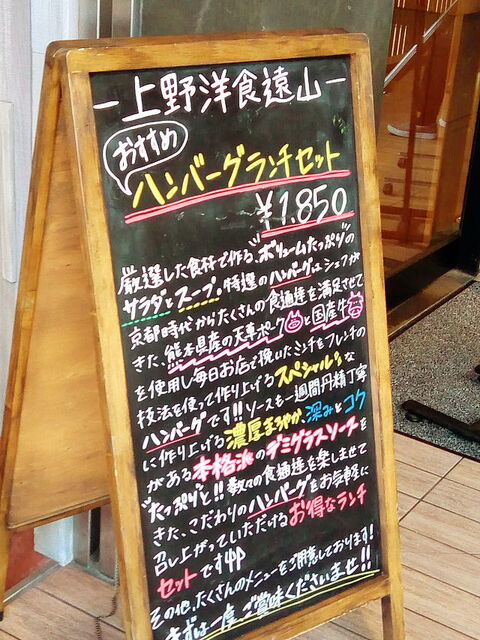 －上野洋食遠山－
おすすめ
ハンバーグランチセット
¥1.850
厳選した食材で作る、ボリュームたっぷりの
サラダとスープ。特選のハンバーグはシェフが
京都時代からたくさんの食通達を満足させて
きた、熊本県産の天草ポークと国産牛
を使用し毎日お店で挽いたミンチをフレンチの
技法を使って作り上げるスペシャルな
ハンバーグです!!ソースも一週間丹精丁寧
に作り上げる濃厚まろやか、深みとコク
がある本格派のデミグラスソースを
たっぷりと!!数々の食通達を楽しませて
きた、こだわりのハンバーグをお気軽に
召し上がっていただけるお得なランチ
セットです
その他、たくさんのメニューをご用意しております!
まずは一度ご賞味くださいませ!!